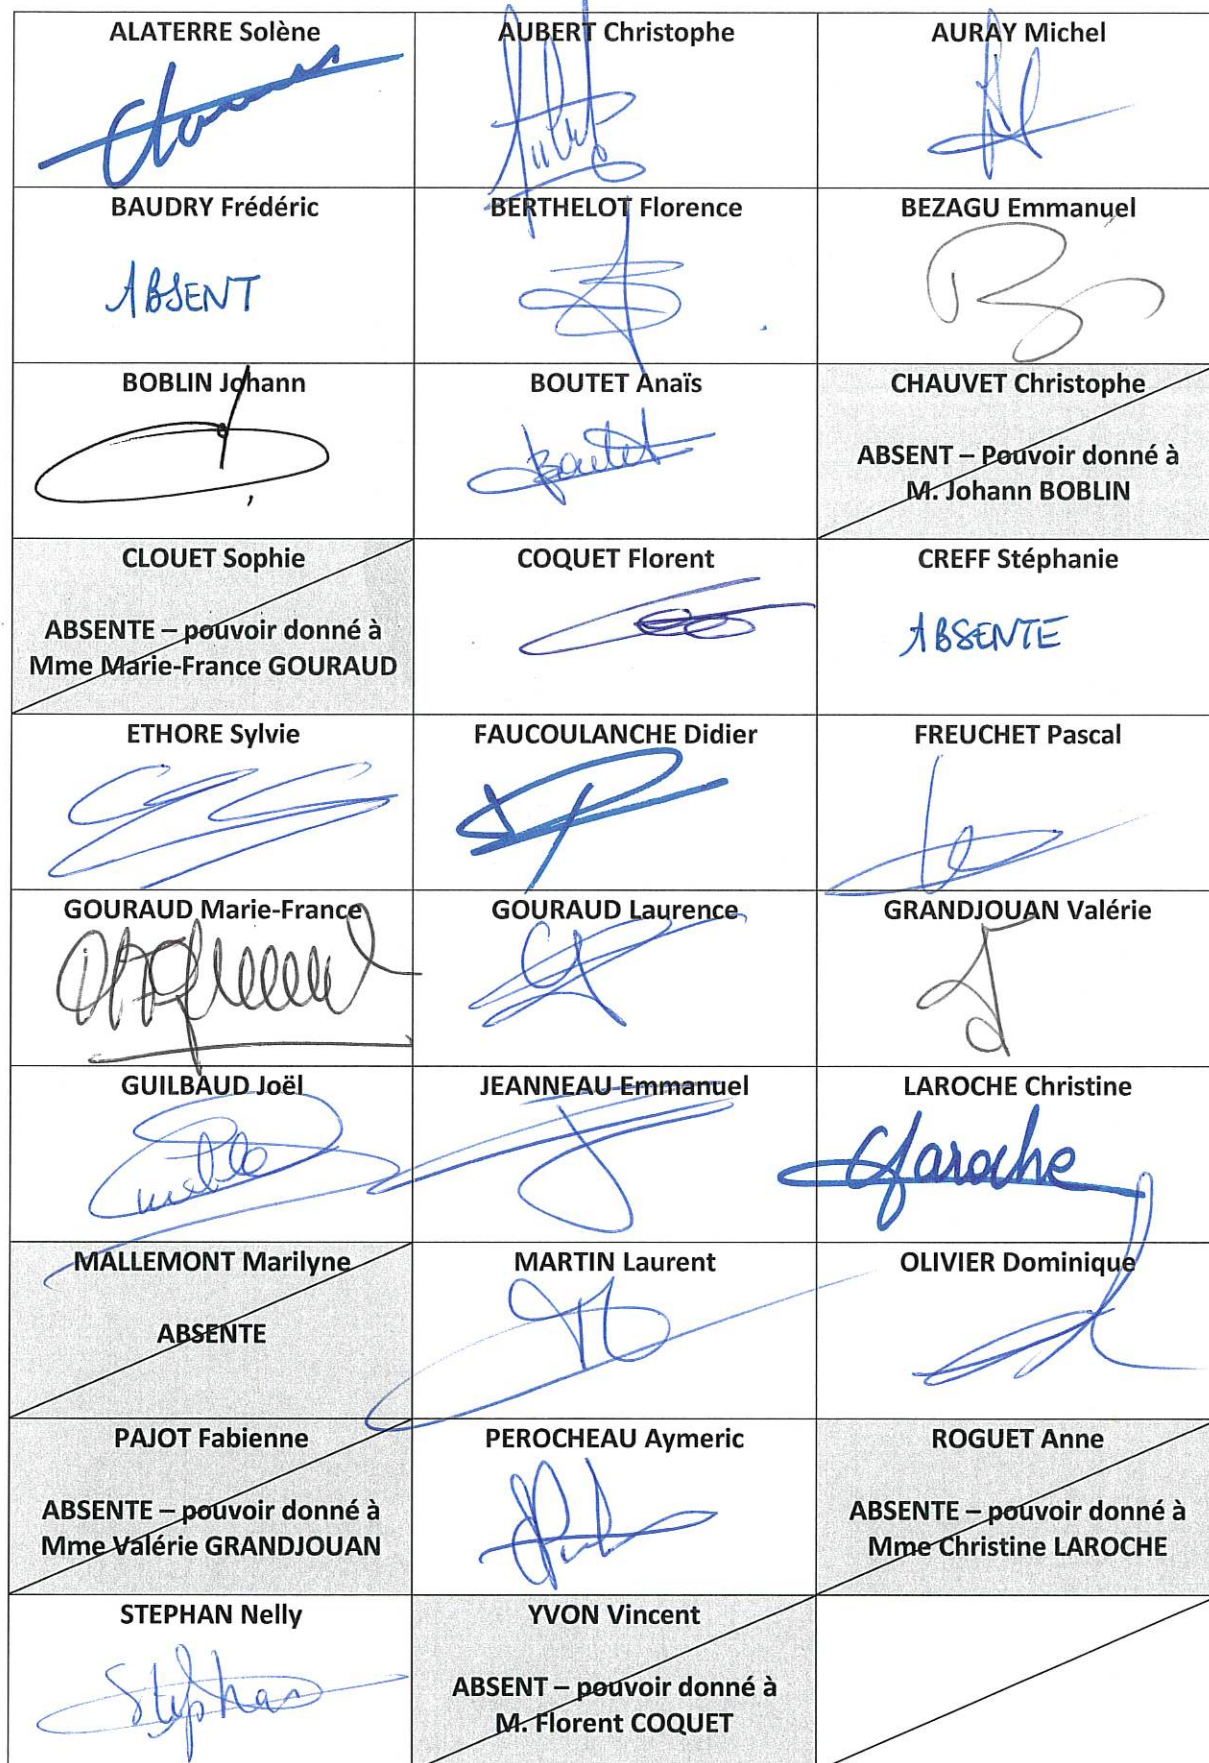 ALATERRE Solène
AUBERT Christophe
AURAY Michel
BAUDRY Frédéric
ABSENT
BERTHELOT Florence
BEZAGU Emmanuel
BOBLIN Johann
BOUTET Anaïs
Boutet
CHAUVET Christophe
ABSENT – Pouvoir donné à
M. Johann BOBLIN
CLOUET Sophie
ABSENTE – pouvoir donné à
Mme Marie-France GOURAUD
COQUET Florent
CREFF Stéphanie
ABSENTE
ETHORE Sylvie
FAUCOULANCHE Didier
FREUCHET Pascal
GOURAUD Marie-France
GOURAUD Laurence
GRANDJOUAN Valérie
GUILBAUD Joël
JEANNEAU Emmanuel
LAROCHE Christine
Claroche
MALLEMONT Marilyne
ABSENTE
MARTIN Laurent
OLIVIER Dominique
PAJOT Fabienne
ABSENTE – pouvoir donné à
Mme Valérie GRANDJOUAN
PEROCHEAU Aymeric
ROGUET Anne
ABSENTE – pouvoir donné à
Mme Christine LAROCHE
STEPHAN Nelly
Stephan
YVON Vincent
ABSENT – pouvoir donné à
M. Florent COQUET